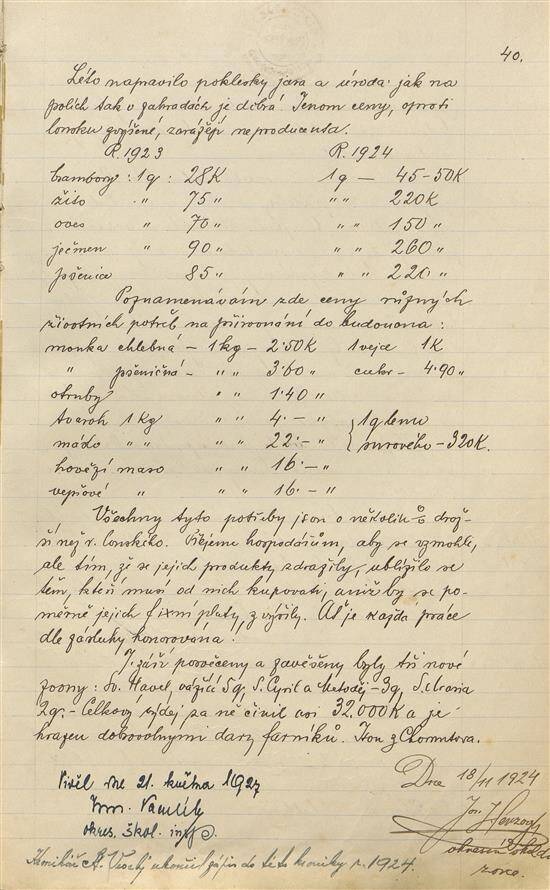 40.
Léto napravilo poklesky jara a úroda jak na
polích tak v zahradách je dobrá. Jenom ceny, oproti
lonsku zvýšené, zarážejí neproducenta.
R. 1923 R. 1924
brambory: 1q : 28K 1q — 45-50K
žito „ 75 „ „ „ 220K
oves „ 70 „ „ „ 150 „
ječmen „ 90 „ „ „ 260 „
pšenice 85 „ „ „ 220 „
Poznamenávám zde ceny různých
životních potřeb na přirovnání do budoucna:
mouka chlebná — 1 kg — 2·50K 1 vejce 1K
„ pšeničná — „ „ 3·60 „ cukr — 4·90 „
otruby „ „ 1·40 „
tvaroh 1 Kg „ „ 4·— „ 1q lenu
máslo „ „ „ „ 22·— „ surového — 320K.
hovězí maso „ „ 16·— „
vepřové „ „ „ 16·— „
Všechny tyto potřeby jsou o několik % draž-
ší než r. lonského. Přejeme hospodářům, aby se vzmohli,
ale tím, že se jejich produkty zdražily, ublížilo se
těm, kteří musí od nich kupovati, aniž by se po-
měrně jejich fixní platy zvýšily. Ať je každá práce
dle zásluhy honorována!
7. září posvěceny a zavěšeny byly tři nové
zvony: Sv. Havel, vážící 5q, S. Cyril a Metoděj — 3q, S. Maria
2q. — Celkový výdej za ně činil asi 32.000K a je
hrazen dobrovolnými dary farníků. Jsou z Chomutova.
Dne 18/11 1924
Viděl dne 21. května 1927
Jos. Herzog
okres. škol. insp.
Kronikář A. ukončil zápis do této kroniky r. 1924.